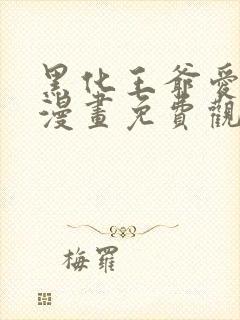 黑化王爺愛
漫畫免費觀
梅羅